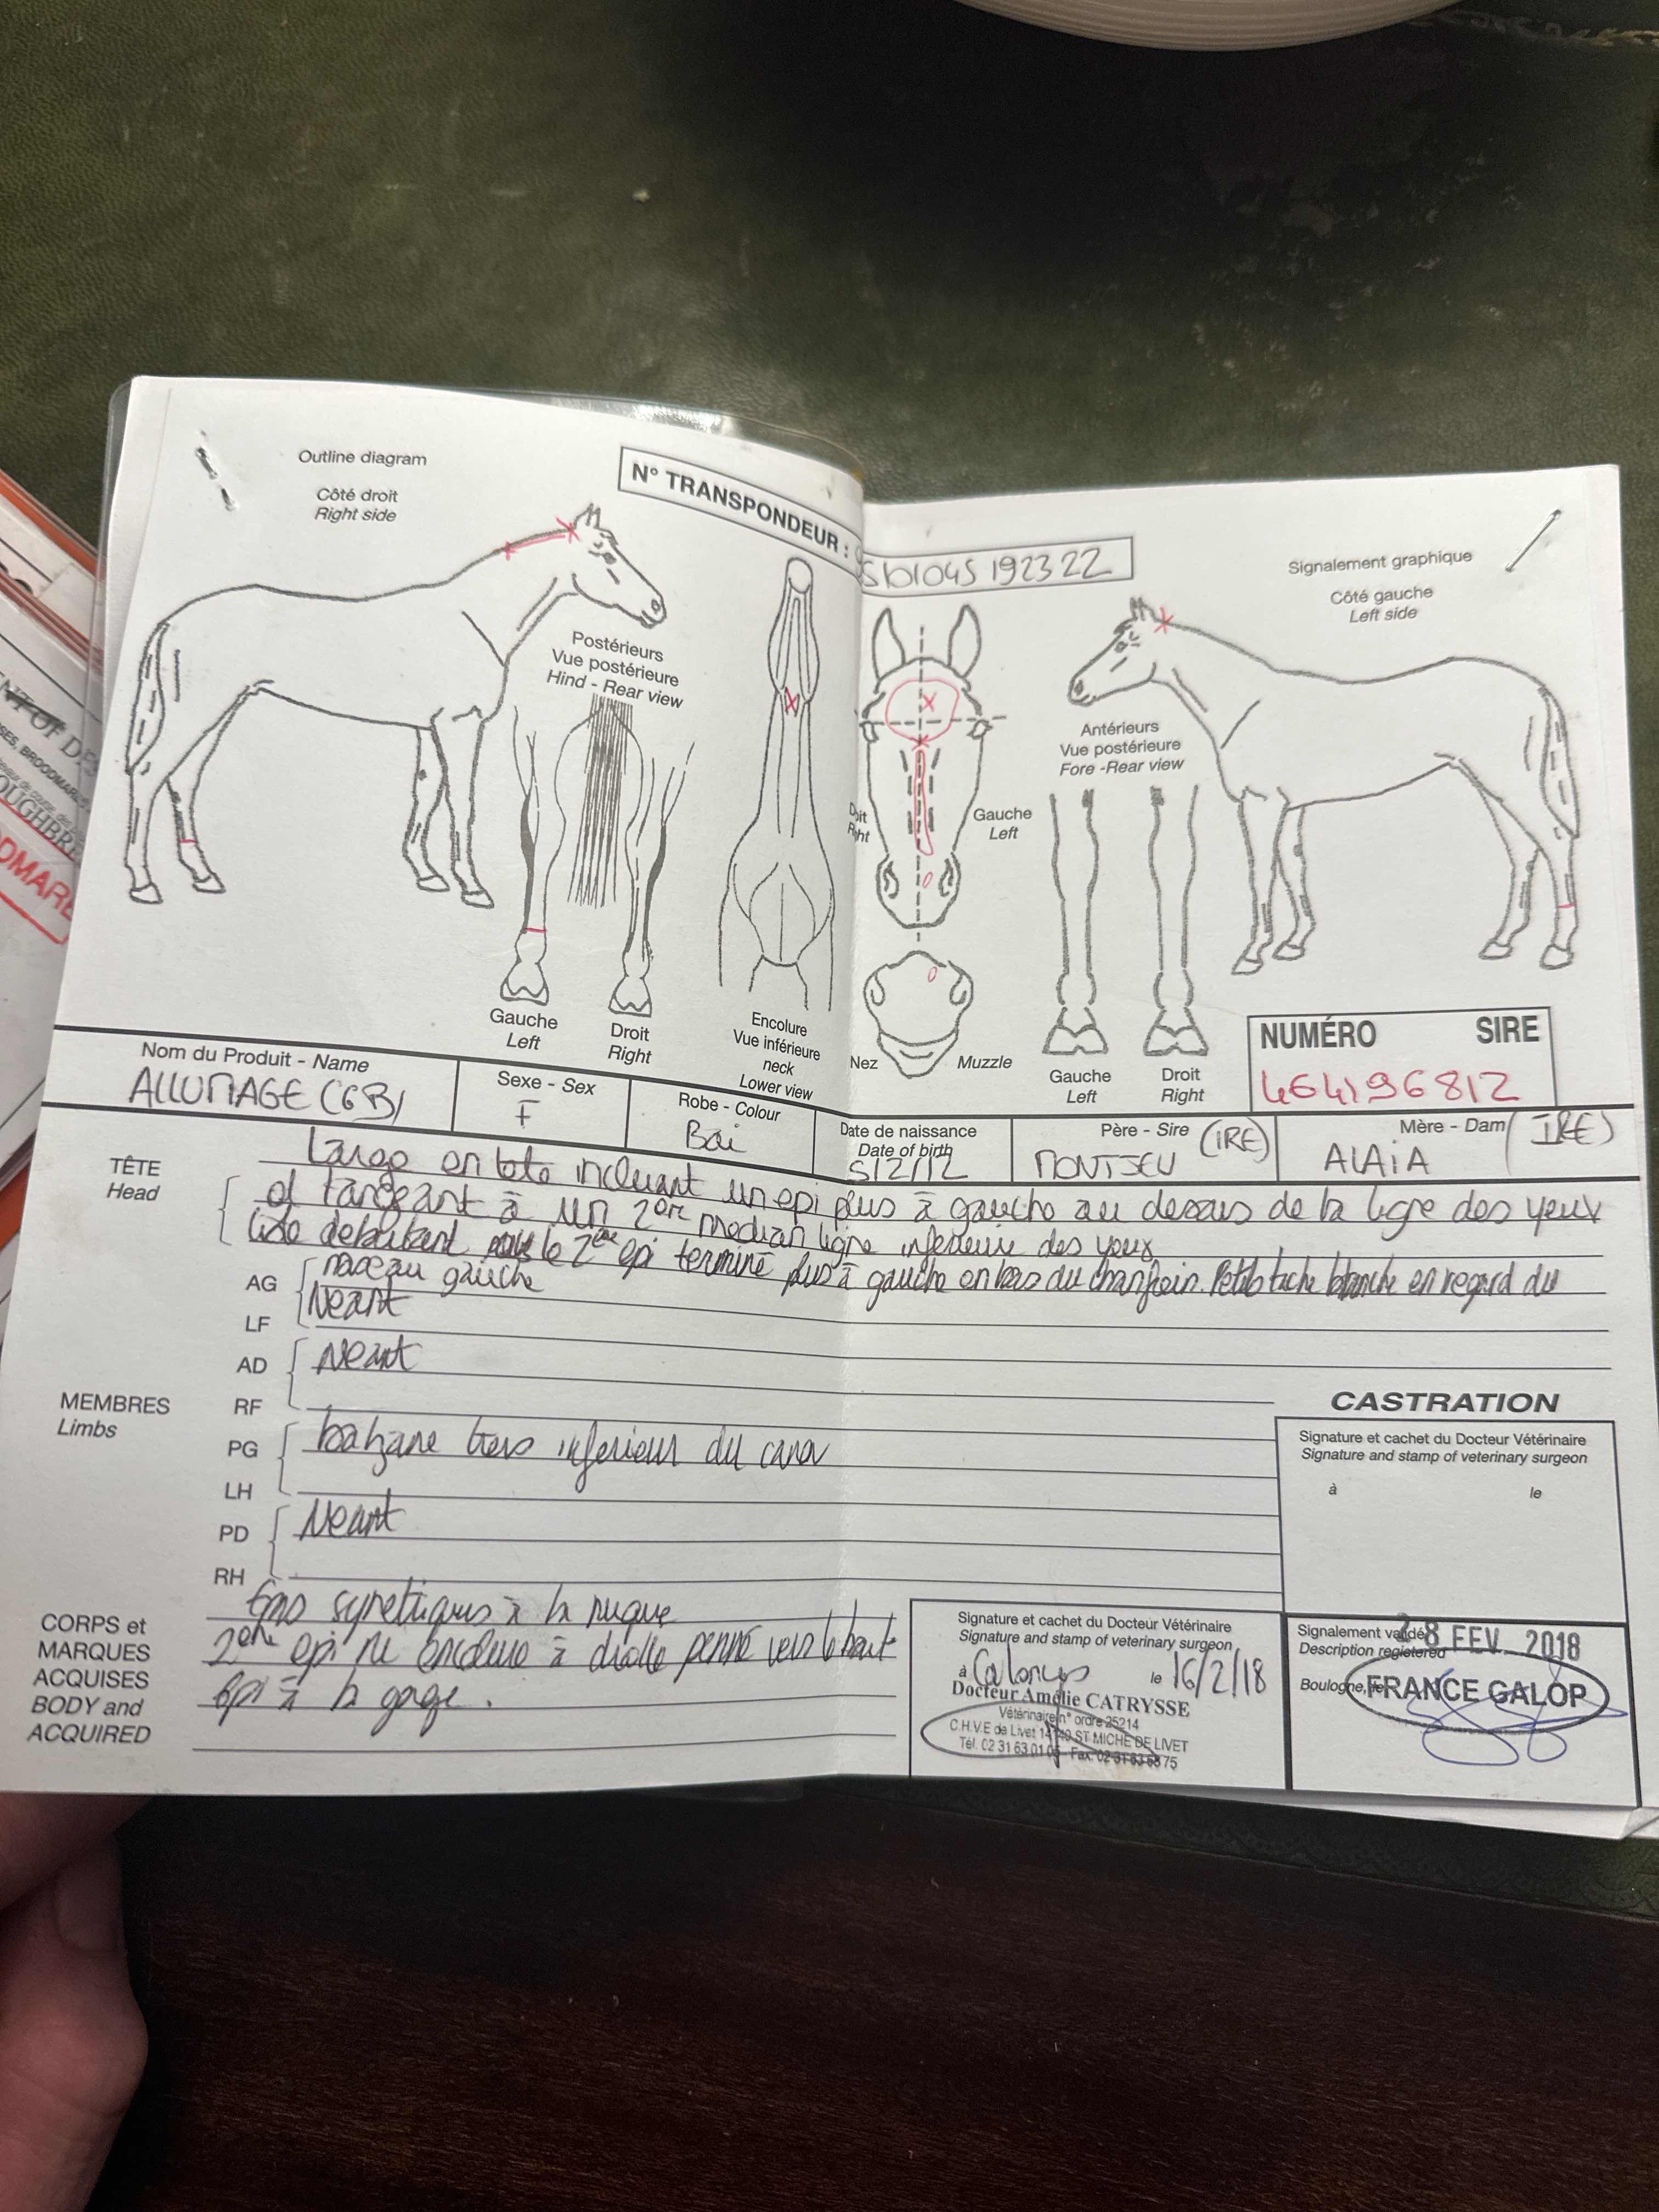 Outline diagram
Côté droit
Right side
N° TRANSPONDEUR :
Signalement graphique
Côté gauche
Left side
Postérieurs
Vue postérieure
Hind - Rear view
Antérieurs
Vue postérieure
Fore -Rear view
Gauche
Left
Gauche
Left
Droit
Right
Encolure
Vue inférieure
neck
Lower view
Nez
Muzzle
Gauche
Left
Droit
Right
NUMÉRO SIRE
Nom du Produit - Name
ALLUMAGE (GB)
Sexe - Sex
F
Robe - Colour
Bai
Date de naissance
Date of birth
5/2/12
Père - Sire (IRE)
MONTJEU
Mère - Dam (IRE)
ALAIA
TÊTE
Head
Large en tete incluant un epi plus à gauche au dessus de la ligne des yeux
et tangeant à un 2eme median ligne inferieure des yeux
liste debutant le 2eme epi termine plus à gauche en bas du chanfrein. Petite tache blanche en regard du
naseau gauche
AG
LF
Neant
AD
RF
Neant
MEMBRES
Limbs
PG
LH
balzane tiers inferieur du canon
PD
RH
Neant
CORPS et
MARQUES
ACQUISES
BODY and
ACQUIRED
Epis symetriques à la nuque
2eme epi encolure à droite penné vers le haut
Epi à la gorge.
CASTRATION
Signature et cachet du Docteur Vétérinaire
Signature and stamp of veterinary surgeon
à le
Signature et cachet du Docteur Vétérinaire
Signature and stamp of veterinary surgeon
à le 16/2/18
Docteur Amélie CATRYSSE
Vétérinaire n° ordre 25214
C.H.V.E de Livet 14140 ST MICHE DE LIVET
Signalement validé
Description registered
28 FEV. 2018
Boulogne, le
FRANCE GALOP